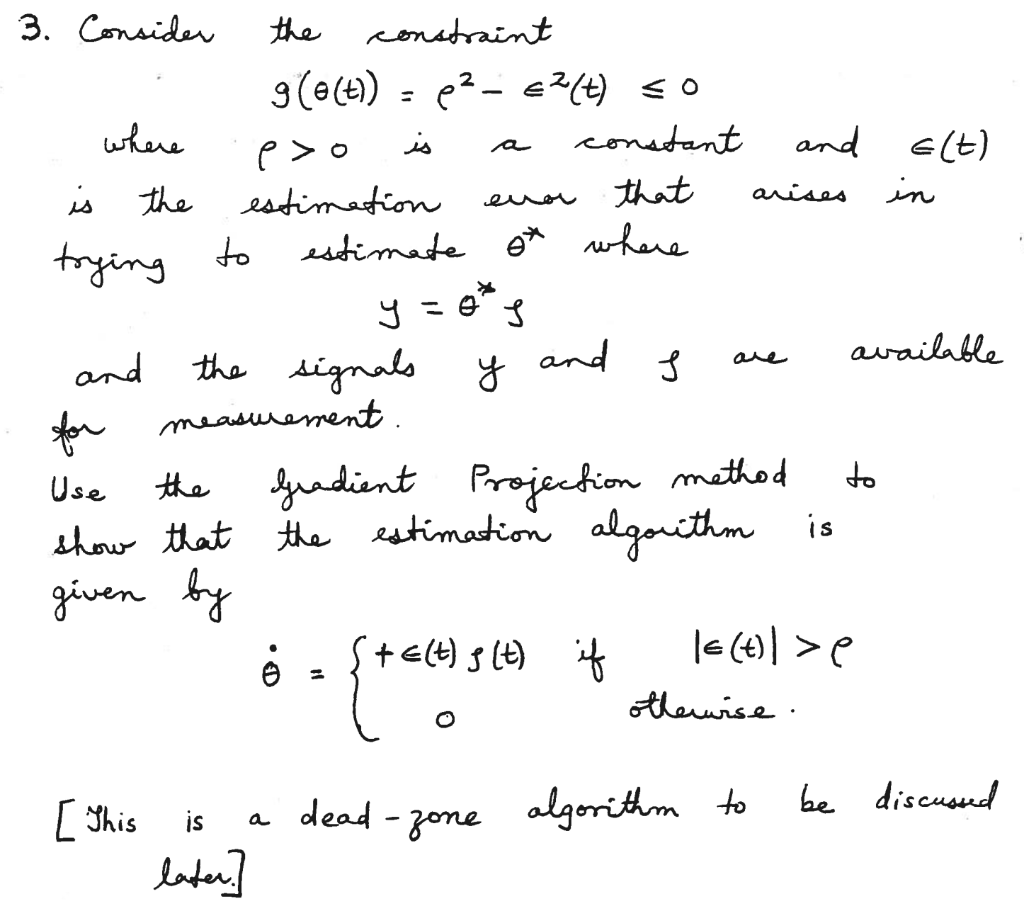 3. Consider the constraint
g(θ(t)) = ρ² − ϵ²(t) ≤ 0
where ρ > 0 is a constant and ϵ(t)
is the estimation error that arises in
trying to estimate θ* where
y = θ* ζ
and the signals y and ζ are available
for measurement.
Use the Gradient Projection method to
show that the estimation algorithm is
given by
θ̇ = { +ϵ(t) ζ(t) if |ϵ(t)| > ρ
0 otherwise.
[This is a dead-zone algorithm to be discussed
later.]